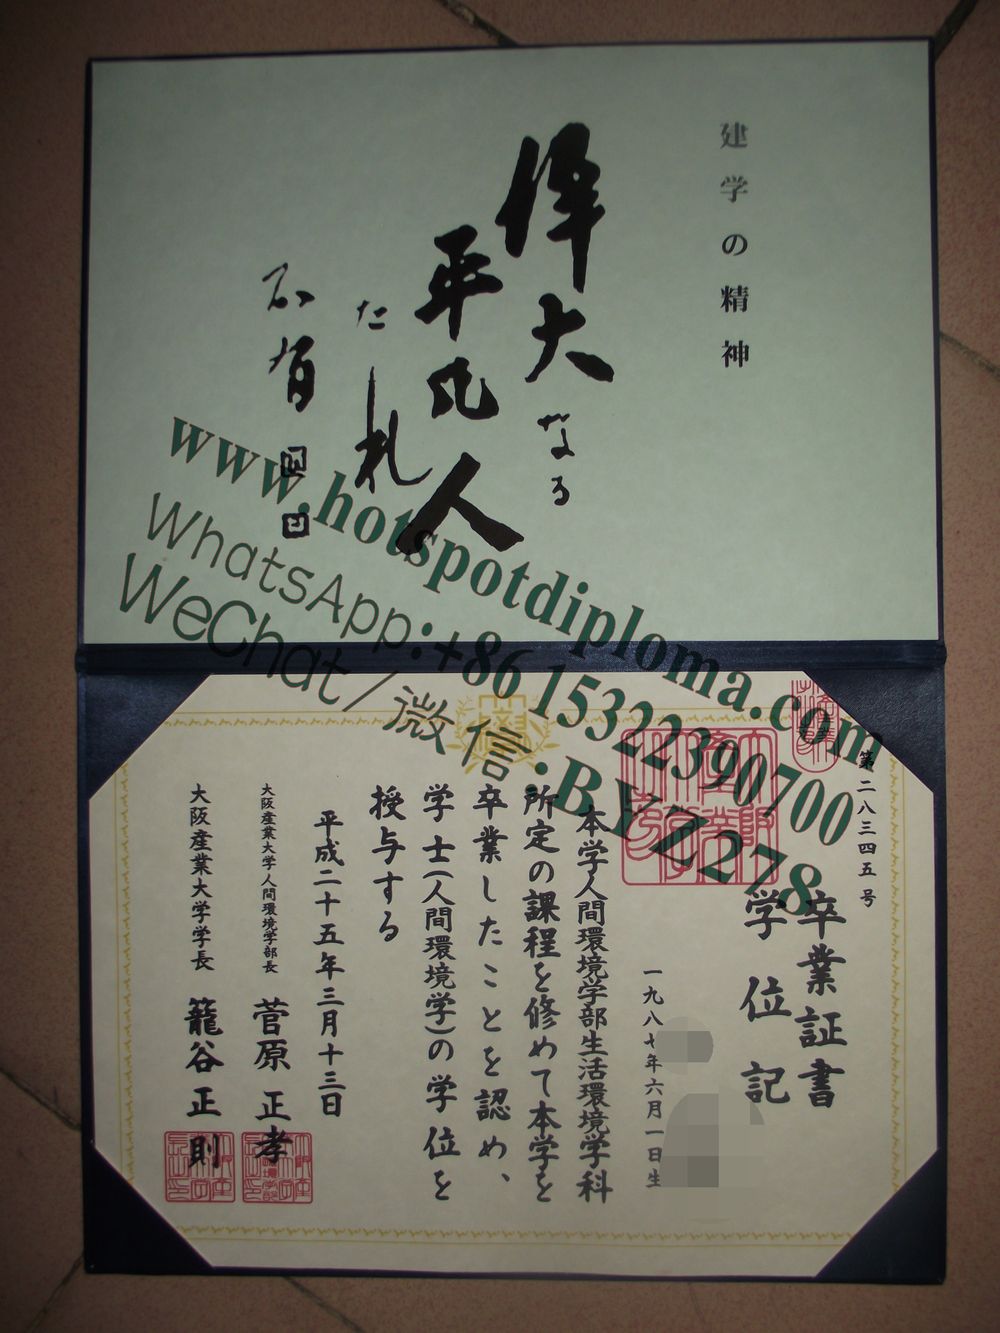 建学の精神
偉大なる
平凡人
たれ
www.hotspotdiploma.com
WhatsApp:+86 15322390700
WeChat/微信:BYZ278
第二八三四五号
卒業証書
学位記
一九八七年六月一日生
本学人間環境学部生活環境学科
所定の課程を修めて本学を
卒業したことを認め、
学士(人間環境学)の学位を
授与する
平成二十五年三月十三日
大阪産業大学人間環境学部長 菅原正孝
大阪産業大学学長 籠谷正則